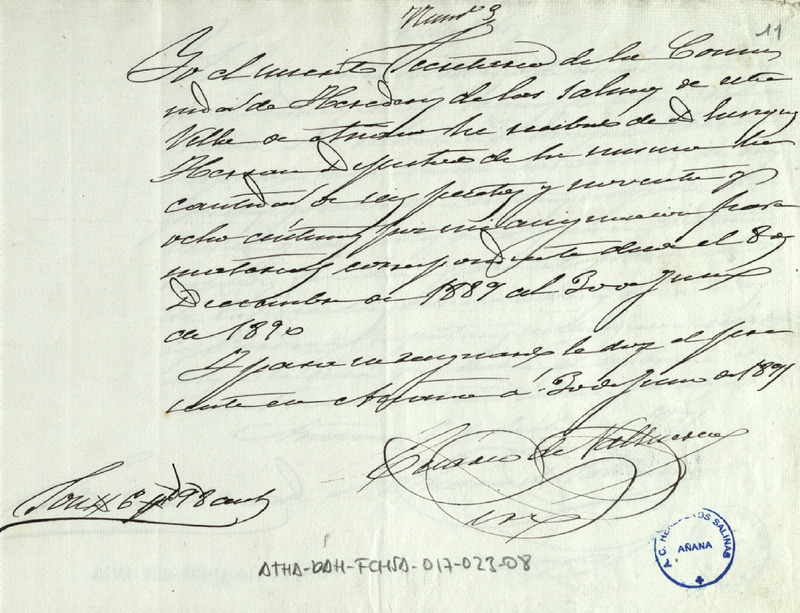 Num.º 3
11
Yo el infrascrito Secretario de la Comu
nidad de Herederos de las Salinas de esta
Villa de Añana he recibido de D
Herran Depositario de la misma la
cantidad de seis pesetas y noventa y
ocho céntimos por mi asignacion para
material correspondiente desde el 8 de
Diciembre de 1889 al 30 de Junio
de 1890
Y para su resguardo le doy el pre
sente en Añana á 30 de Junio de 1890
de
Son # 6 pts 98 cent
ATHA-DAH-FCHSA-017-023-08
A. C. HEREDEROS SALINAS
AÑANA